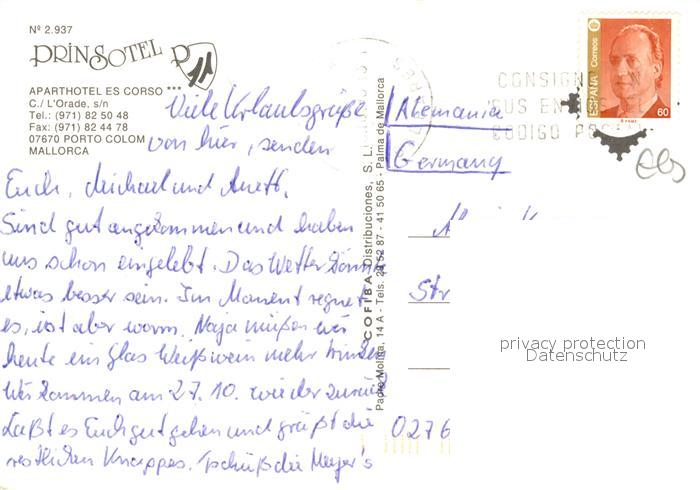 Nº 2.937
PRINSOTEL
APARTHOTEL ES CORSO ***
C./ L'Orade, s/n
Tel.: (971) 82 50 48
Fax: (971) 82 44 78
07670 PORTO COLOM
MALLORCA
Viele Urlaubsgrüße
von hier, senden
Euch, Michael und Anett.
Sind gut angekommen und haben
uns schon eingelebt. Das Wetter könnte
etwas besser sein. Im Moment regnet
es, ist aber warm. Naja müßen wir
heute ein Glas Weißwein mehr trinken
Wir kommen am 27.10. wieder zurück
Laßt es Euch gut gehen und grüßt die
restlichen Knappes. Tschüß die Meyer's
COFIBA Distribuciones, S. L.
Padre Molina, 14 A - Tels. 24 52 87 - 41 50 65 - Palma de Mallorca
Alemania
Germany
Str
0276
ESPAÑA Correos
60
CONSIGN
CODIGO POSTAL
privacy protection
Datenschutz